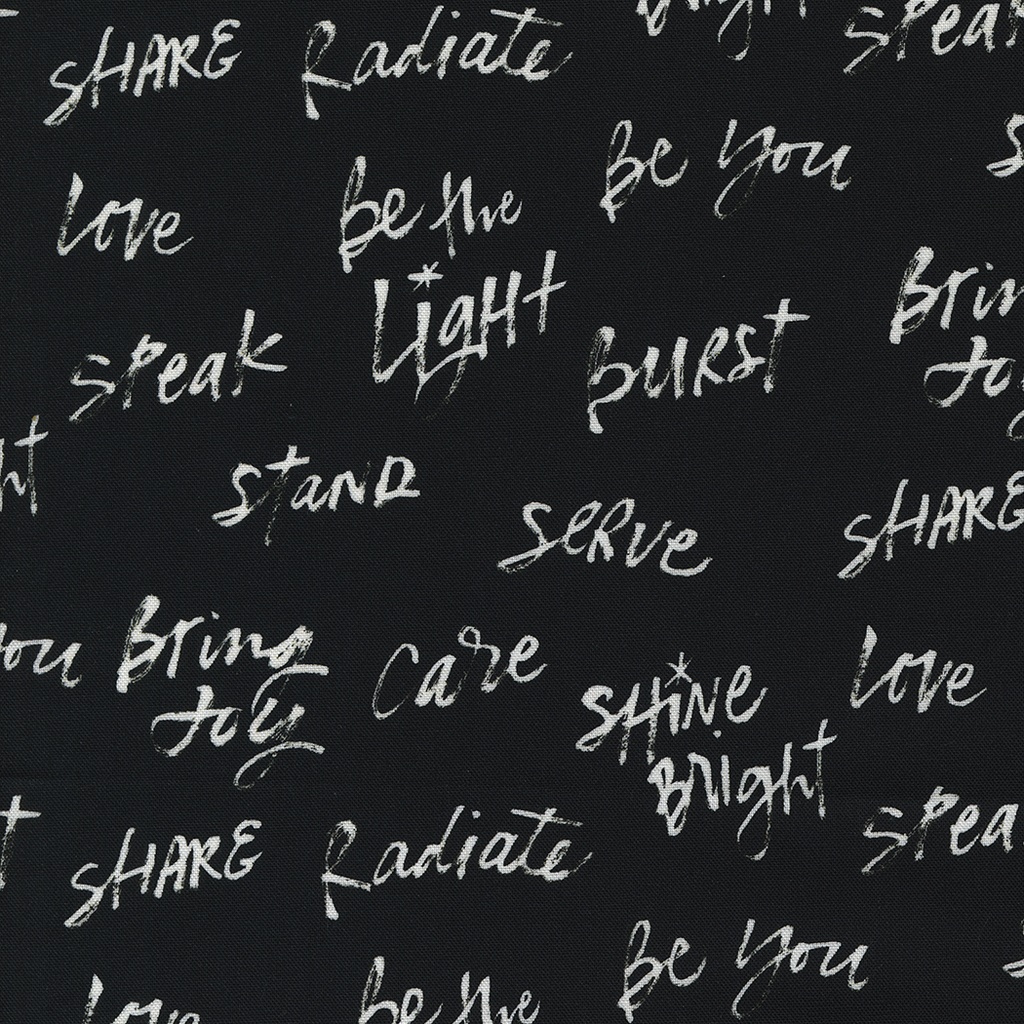 Bright
SHARE Radiate Speak
Be You
Love Be the
Light
Speak BURST Bring
Joy
STAND
SERVE SHARE
You Bring Care
Joy SHINE Love
Bright
SHARE Radiate Speak
Be You
Love Be the